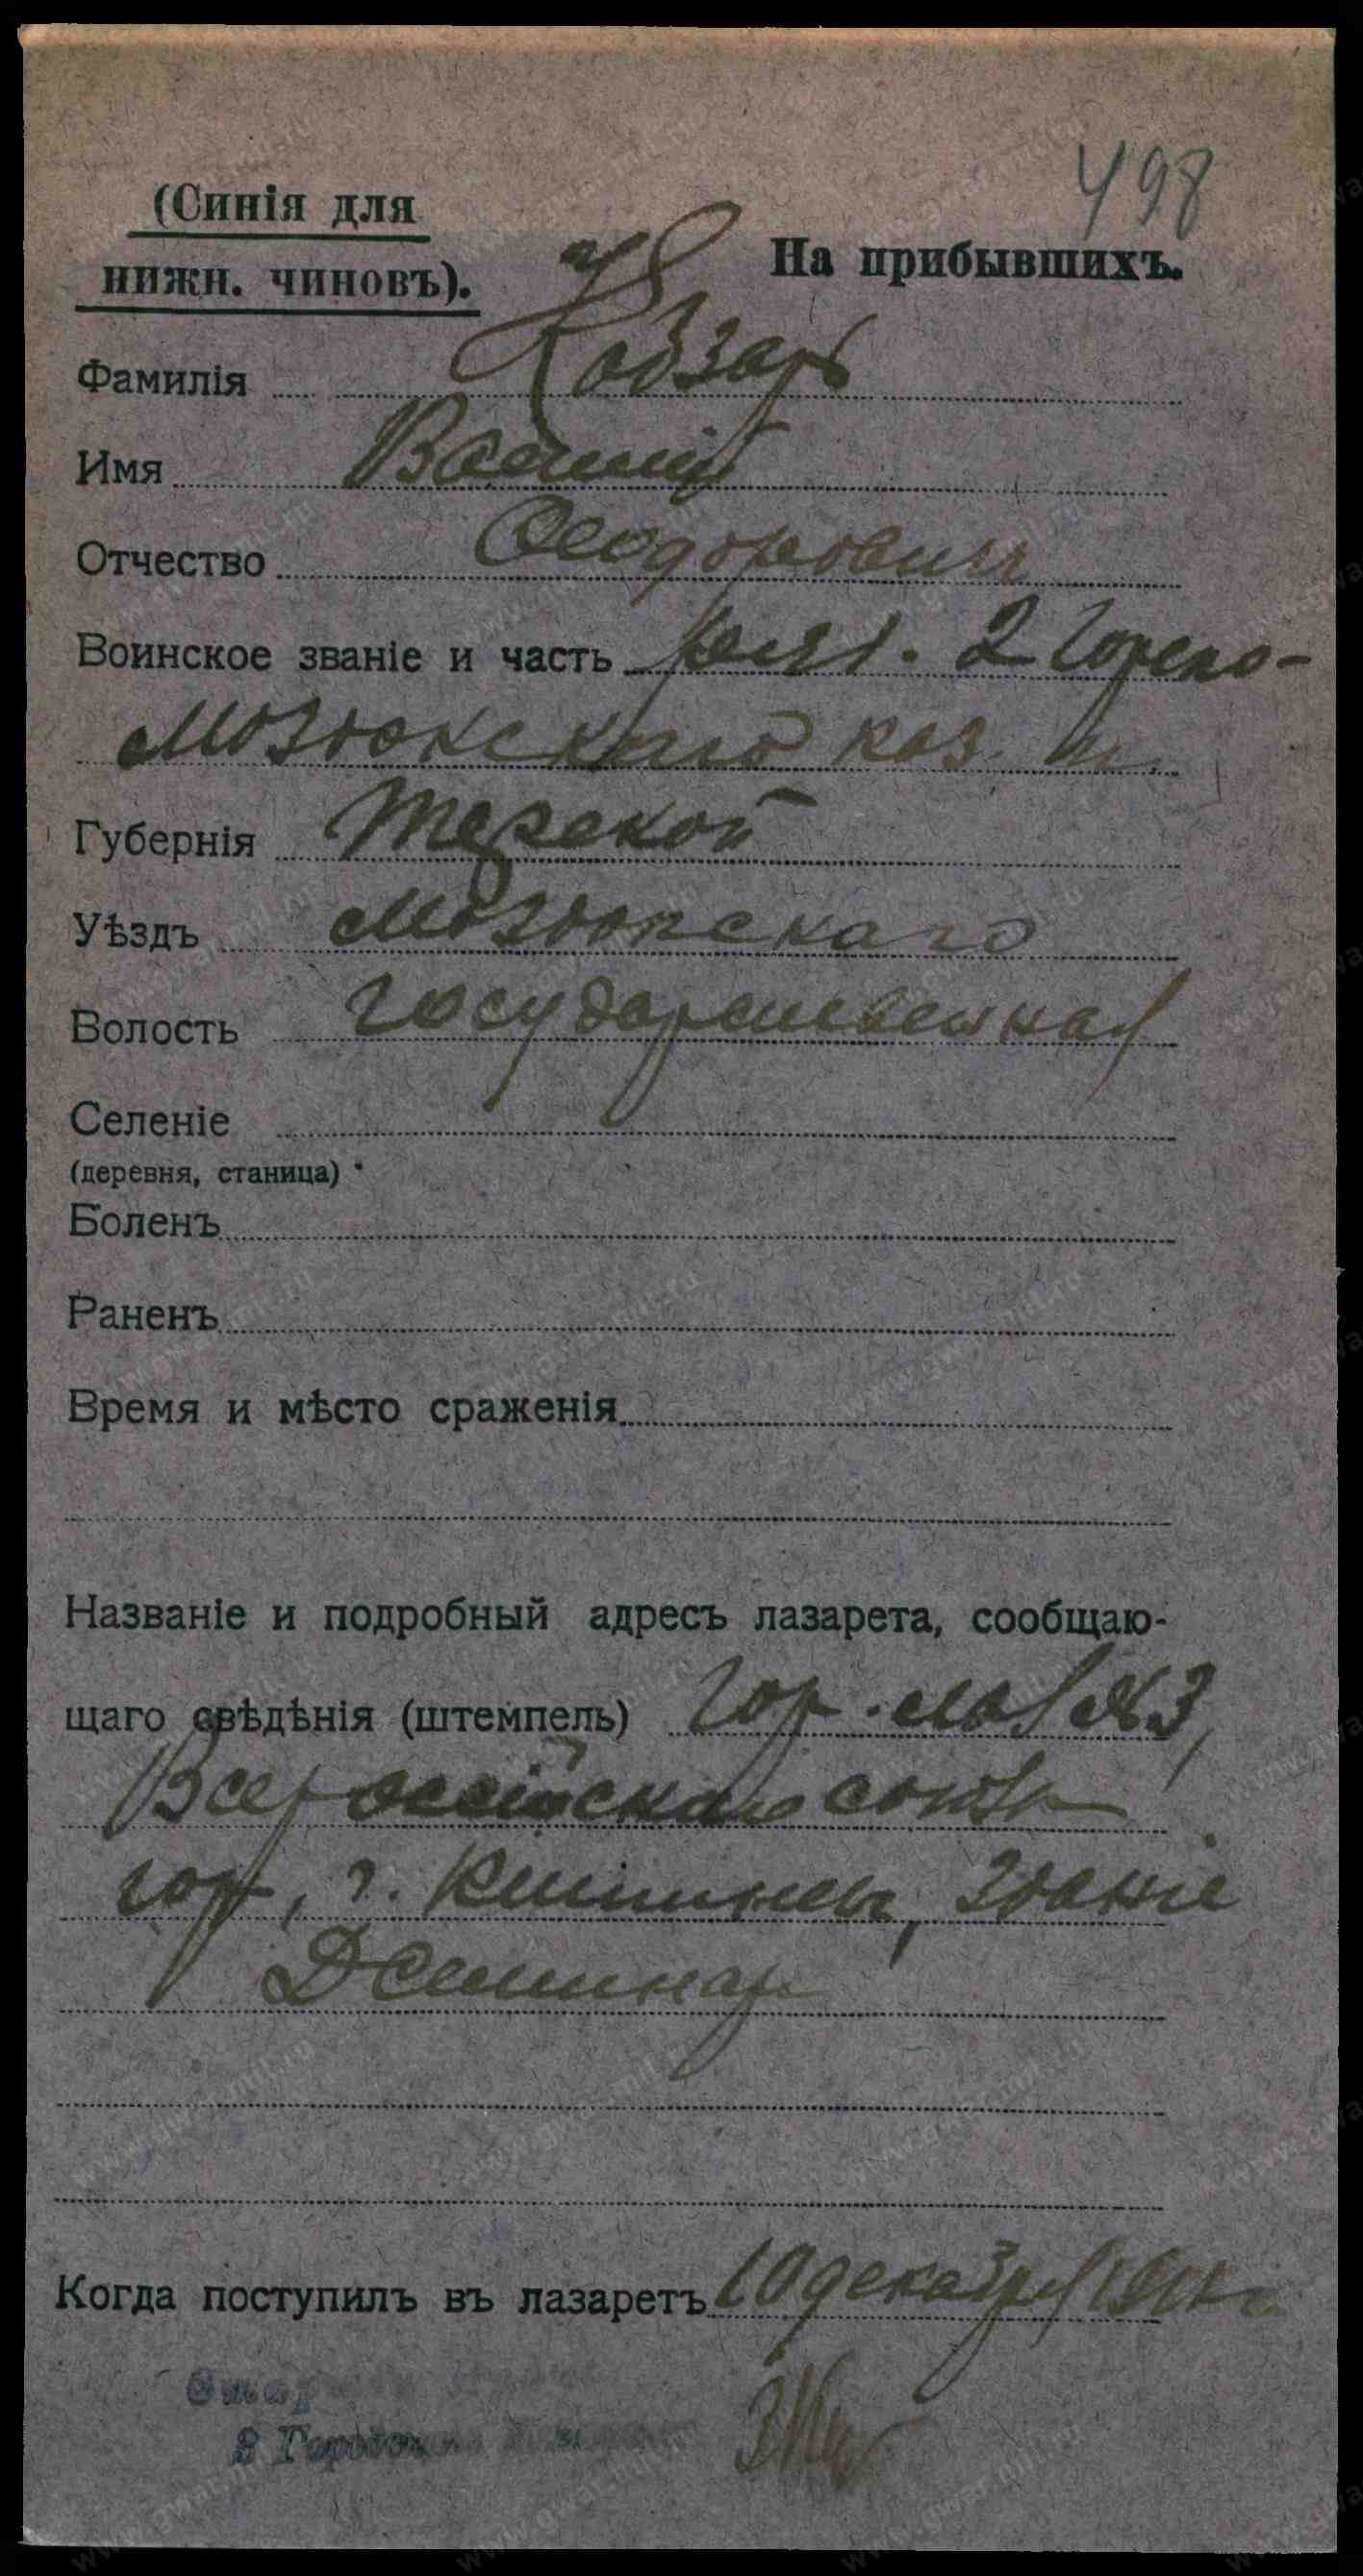 498
(Синія для
нижн. чиновъ).
На прибывшихъ.
Фамилія Кобзарь
Имя Василій
Отчество Ѳеодоровичъ
Воинское званіе и часть 2 Горско-
Моздокскаго каз. п.
Губернія Терской
Уѣздъ Моздокскаго
Волость Государственная
Селеніе
(деревня, станица)
Боленъ
Раненъ
Время и мѣсто сраженія
Названіе и подробный адресъ лазарета, сообщаю-
щаго свѣдѣнія (штемпель) Гор. лаз №3,
Всероссійскаго союза
гор, г. Кишиневъ, Зданіе
Д Семинар
Когда поступилъ въ лазаретъ 10 декабря
3 Городск